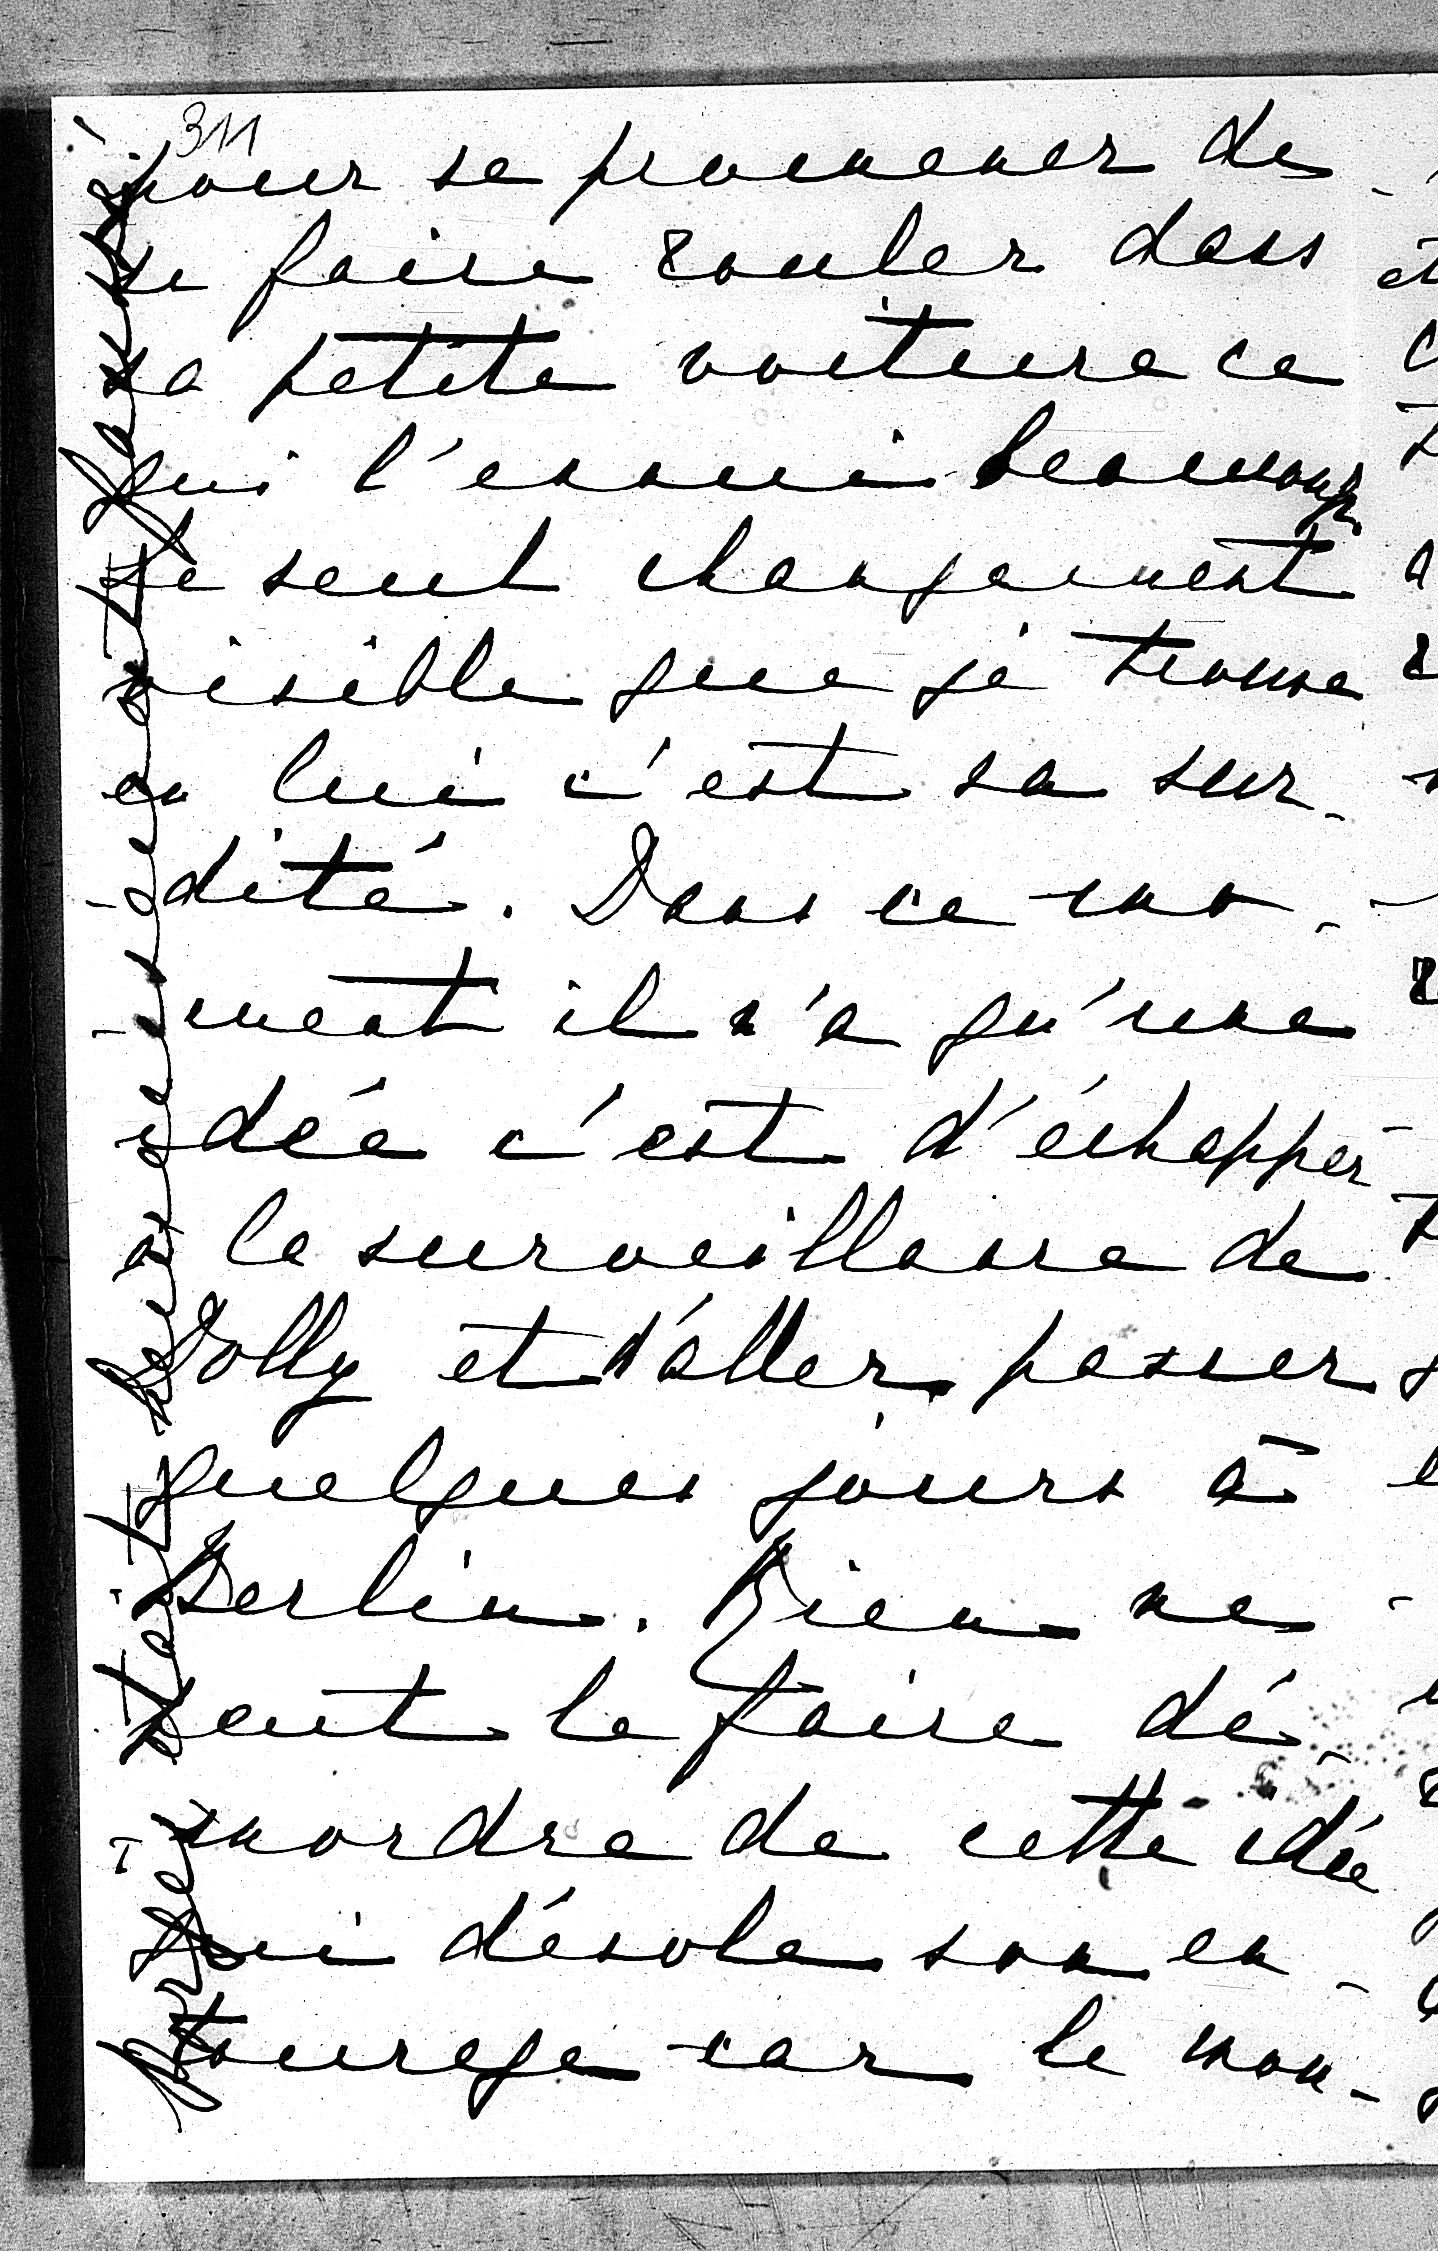 311
pour se promener de
se faire rouler dans
sa petite voiture ce
qui l'ennui beaucoup
Le seul changement
visible que je trouve
en lui c'est sa sur-
-dité. Dans ce mo-
-ment il n'a qu'une
idée c'est d'échapper
à la surveillance de
Dolly et d'aller passer
quelques jours à
Berlin. Rien ne
peut le faire dé-
-mordre de cette idée
qui désole son en-
tourage car le mon-